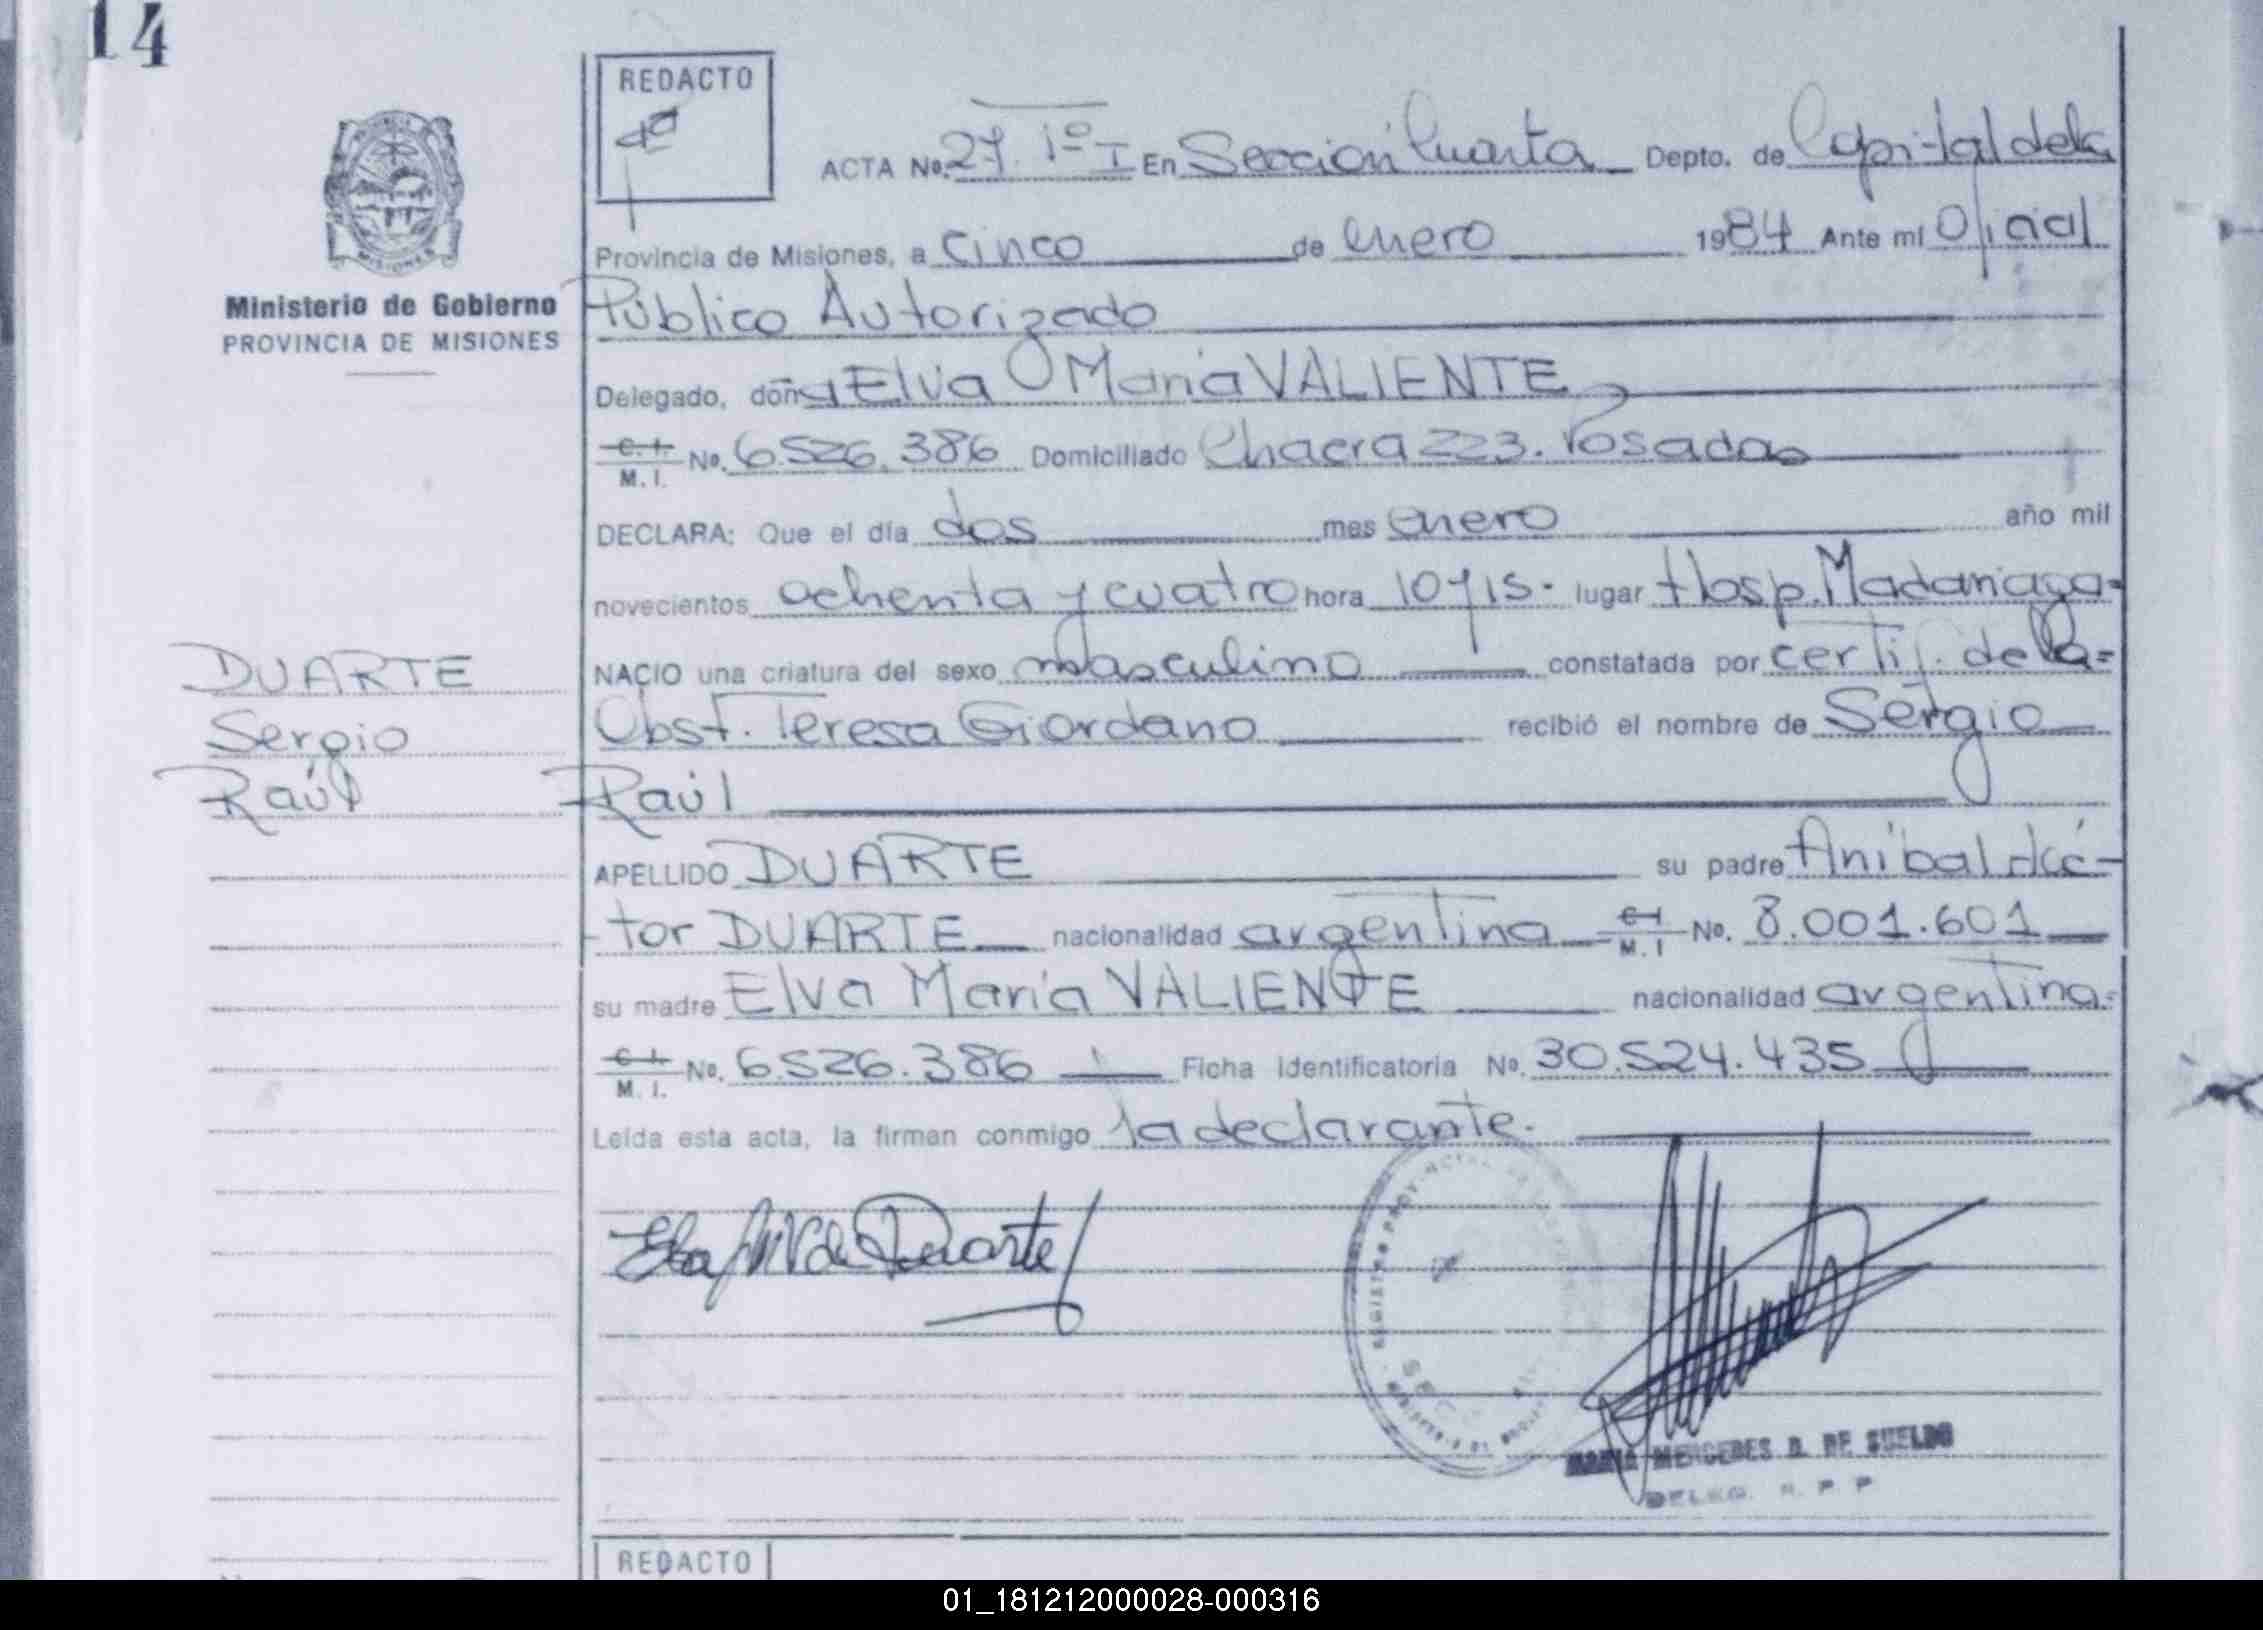 14
REDACTO
ACTA No. 27. Tº I En Sección Cuarta Depto. de Capital de la
Provincia de Misiones, a cinco de enero 1984 Ante mí Oficial
Ministerio de Gobierno
PROVINCIA DE MISIONES
Público Autorizado
Delegado, doña Elva María VALIENTE
C. I. M. I. No. 6.526.386 Domiciliado Chacra 223. Posadas
DECLARA: Que el día dos mes enero año mil
novecientos ochenta y cuatro hora 10 y 15. lugar Hosp. Madariaga
NACIO una criatura del sexo masculino constatada por certif. de la
Obst. Teresa Giordano recibió el nombre de Sergio
Raúl
APELLIDO DUARTE su padre Aníbal Héc-
tor DUARTE nacionalidad argentina C I M. I No. 8.001.601
su madre Elva María VALIENTE nacionalidad argentina
C I. M. I. No. 6.526.386 Ficha Identificatoria No. 30.524.435
Leída esta acta, la firman conmigo la declarante.
DUARTE
Sergio
Raúl
Duarte
MARIA MERCEDES D. DE SUELDO
DELEG. R. P. P
REDACTO
01_181212000028-000316